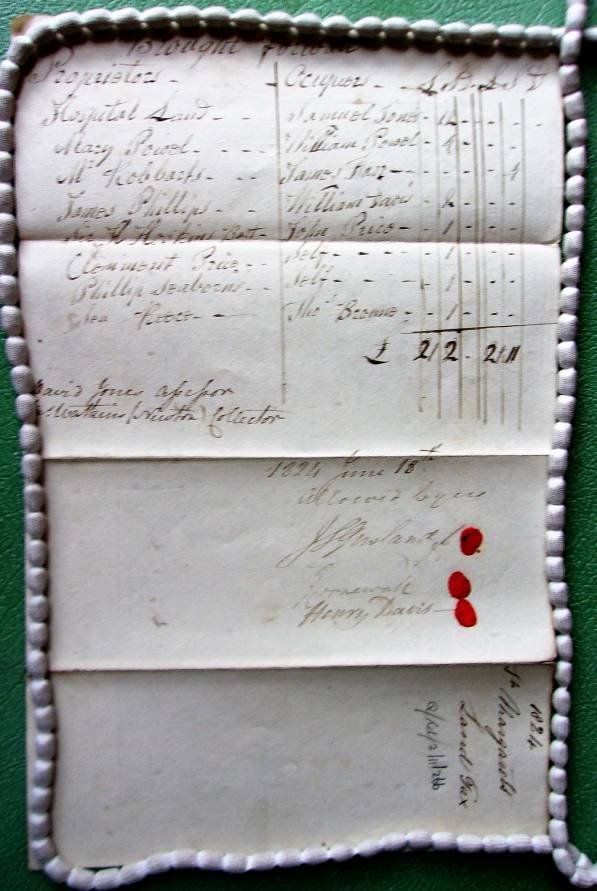 Brought forward
Proprietors - Occupiers - £ S D £ S D
Hospital Land - - Samuel Jones - 12 - - - -
Mary Powel - - - - William Powel - 4 - - - -
Mr Robbarts - - James - - - - 4
James Phillips - - William Davis - - - -
Sir H Hoskins Bart - John Price - 1 - - - -
Clemment Price - - Self - - - 1 - - - -
Phillip Seaborne - - Self - - - 1 - - - -
Reece - - Thos Browne - 1 - - -
£ 21 2 - 21 11
David Jones assessor
Watkins (Newton) Collector
1824 June 18th
Allowed by us
Cornewall
Henry Davis
1824
St Margarets
Land Tax
Q/Rel/2/11/26b